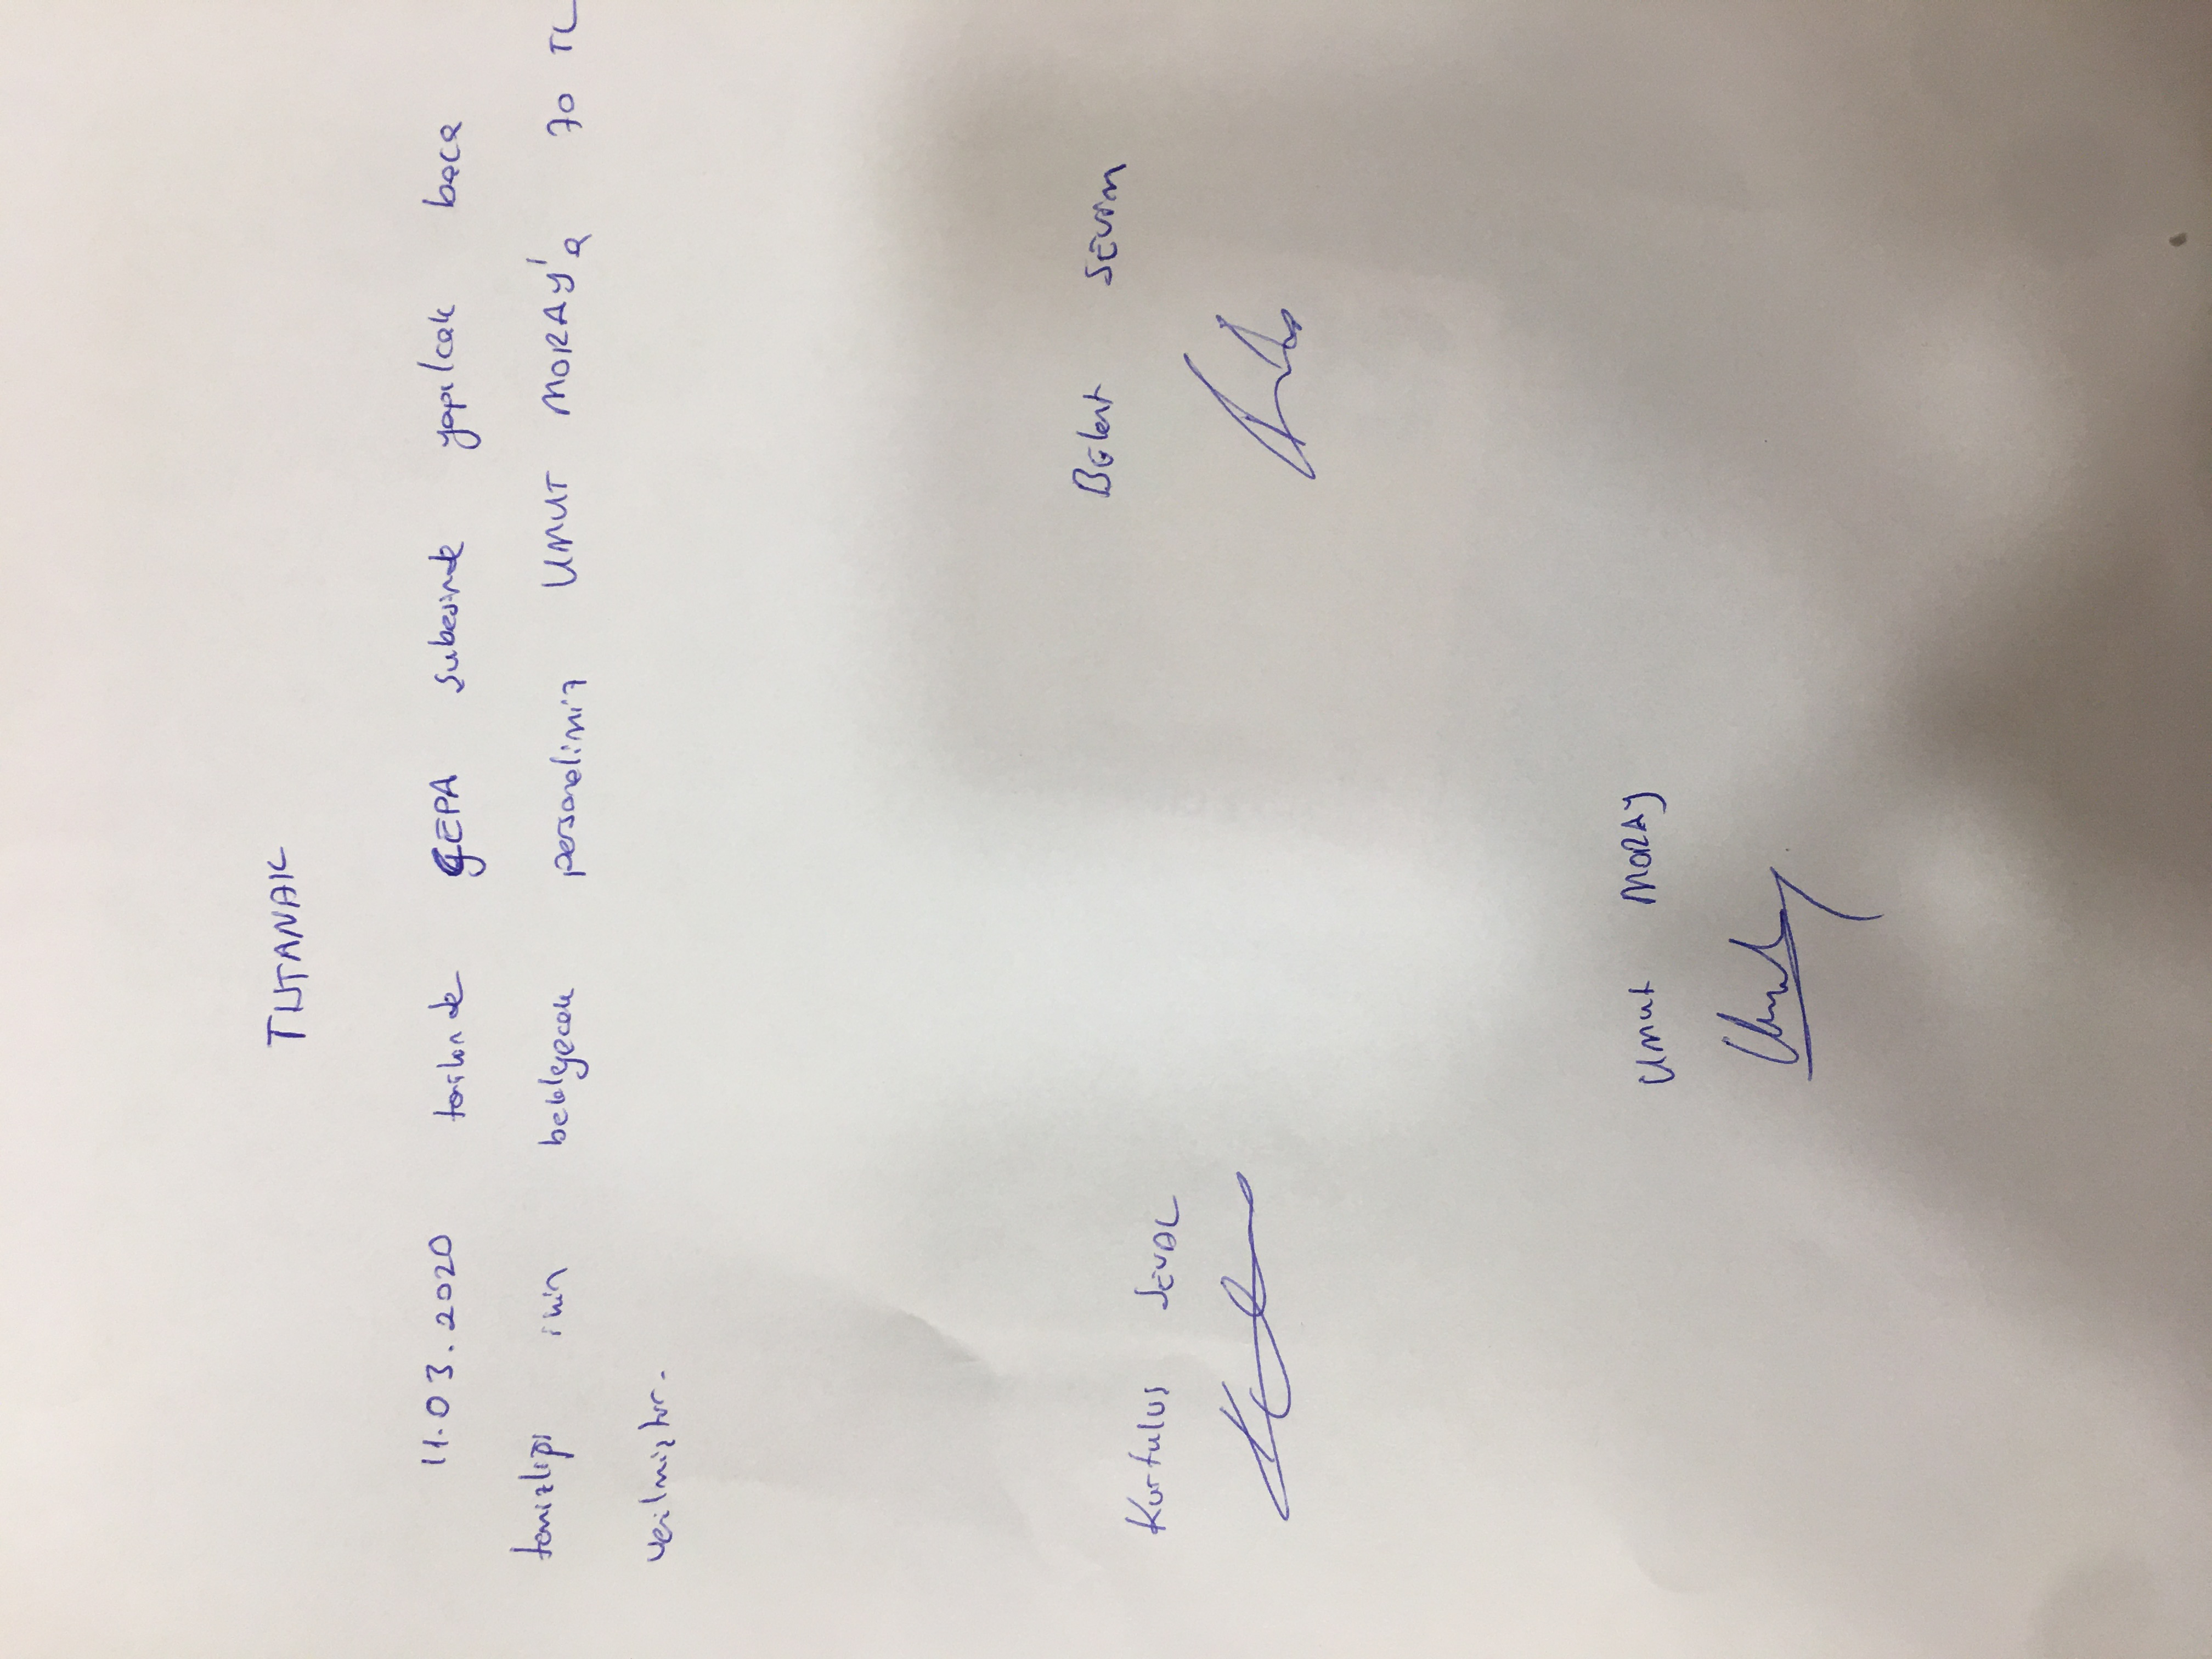 TUTANAK
11.03.2020 tarihinde CEPA şubesinde yapılcak baca
temizliği için bekleyecek personelimiz UMUT MORAY'a 70 TL
verilmiştir.
SEVİM
Kurtuluş SEVAL
Umut MORAY